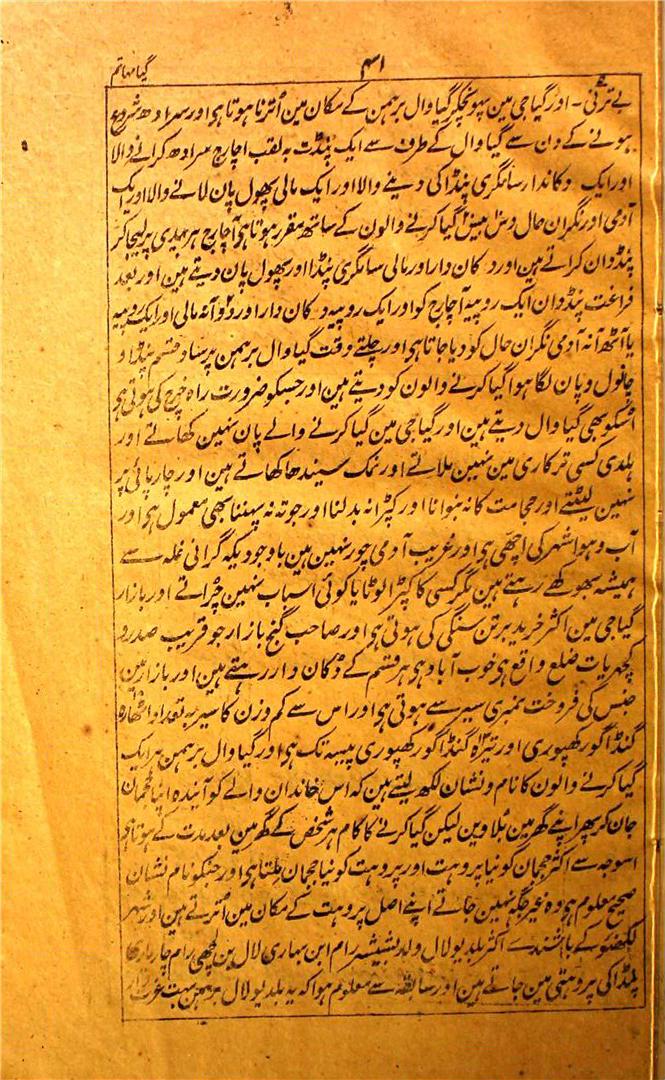 ۴۱
گیا مہاتم
بے ترنی ۔ اور گیاجی مین پہونچکر گیا وال برہمن کے مکان مین اُترنا ہوتا ہی اور سرادھ شروع
ہونے کے دن سے گیا وال کے طرف سے ایک پنڈت بہ لقب اچارج سرادھ کرانے والا
اور ایک دکاندار سانگری پنڈا کی دینے والا اور ایک مالی پھول پان لانے والا اور ایک
آدمی اور نگران حال دس بیس گیا کرنے والون کے ساتھ مقرر ہوتا ہی آچارج ہر بیدی پر لیجا کر
پنڈدان کراتے ہین اور دکان دار اور مالی سانگری پنڈا اور پھول پان دیتے ہین اور بعد
فراغت پنڈدان ایک روپیہ آچارج کو اور ایک روپیہ دکان دار اور دو آنہ مالی اور ایک روپیہ
یا آٹھ آنہ آدمی نگران حال کو دیا جاتا ہی اور چلتے وقت گیا وال برہمن پرساد قسم پنڈا و
چانول و پان لگا ہوا گیا کرنے والون کو دیتے ہین اور جسکو ضرورت راہ خرچ کی ہوتی ہی
اُسکو بھی گیا وال دیتے ہین اور گیاجی مین گیا کرنے والے پان نہین کھاتے اور
ہلدی کسی ترکاری مین نہین ملاتے اور نمک سیندھا کھاتے ہین اور چارپائی پر
نہین لیٹتے اور حجامت کا نہ بنوانا اور کپڑا نہ بدلنا اور جوتہ نہ پہننا بھی معمول ہی اور
آب و ہوا شہر کی اچھی ہی اور غریب آدمی چور نہین ہین باوجودیکہ گرانی غلہ سے
ہمیشہ بھوکھے رہتے ہین مگر کسی کا کپڑا لوٹا یا کوئی اسباب نہین چُراتے اور بازار
گیاجی مین اکثر خرید برتن سنگی کی ہوتی ہی اور صاحب گنج بازار جو قریب صدر و
کچہریات ضلع واقع ہی خوب آباد ہی ہر قسم کے دکان دار رہتے ہین اور بازار مین
جنس کی فروخت نمبری سیر سے ہوتی ہی اور اس سے کم وزن کا سیر بہ تعداد اٹھارہ
گنڈا گورکھپوری اور تیرہ گنڈا گورکھپوری پیسہ تک ہی اور گیا وال برہمن ہر ایک
گیا کرنے والون کا نام و نشان لکھ لیتے ہین کہ اس خاندان والے کو آیندہ اپنا ججمان
جان کر پھر اپنے گھر مین بُلاوین لیکن گیا کرنے کا کام ہر شخص کے گھر مین بعد مدت کے ہوتا ہی
اسوجہ سے اکثر ججمان کو نیا پروہت اور پروہت کو نیا ججمان ملتا ہی اور جنکو نام نشان
صحیح معلوم ہی وہ غیر جگہ نہین جاتے اپنے اصل پروہت کے مکان مین اُترتے ہین اور شہر
لکھنؤ کے باشندے اکثر بلدیو لال ولد بشیشر رام ابن بہاری لال بن لچھی رام
پنڈا کی پروہتی مین جاتے ہین اور سابقہ سے معلوم ہوا کہ یہ بلدیو لال برہمن بہت